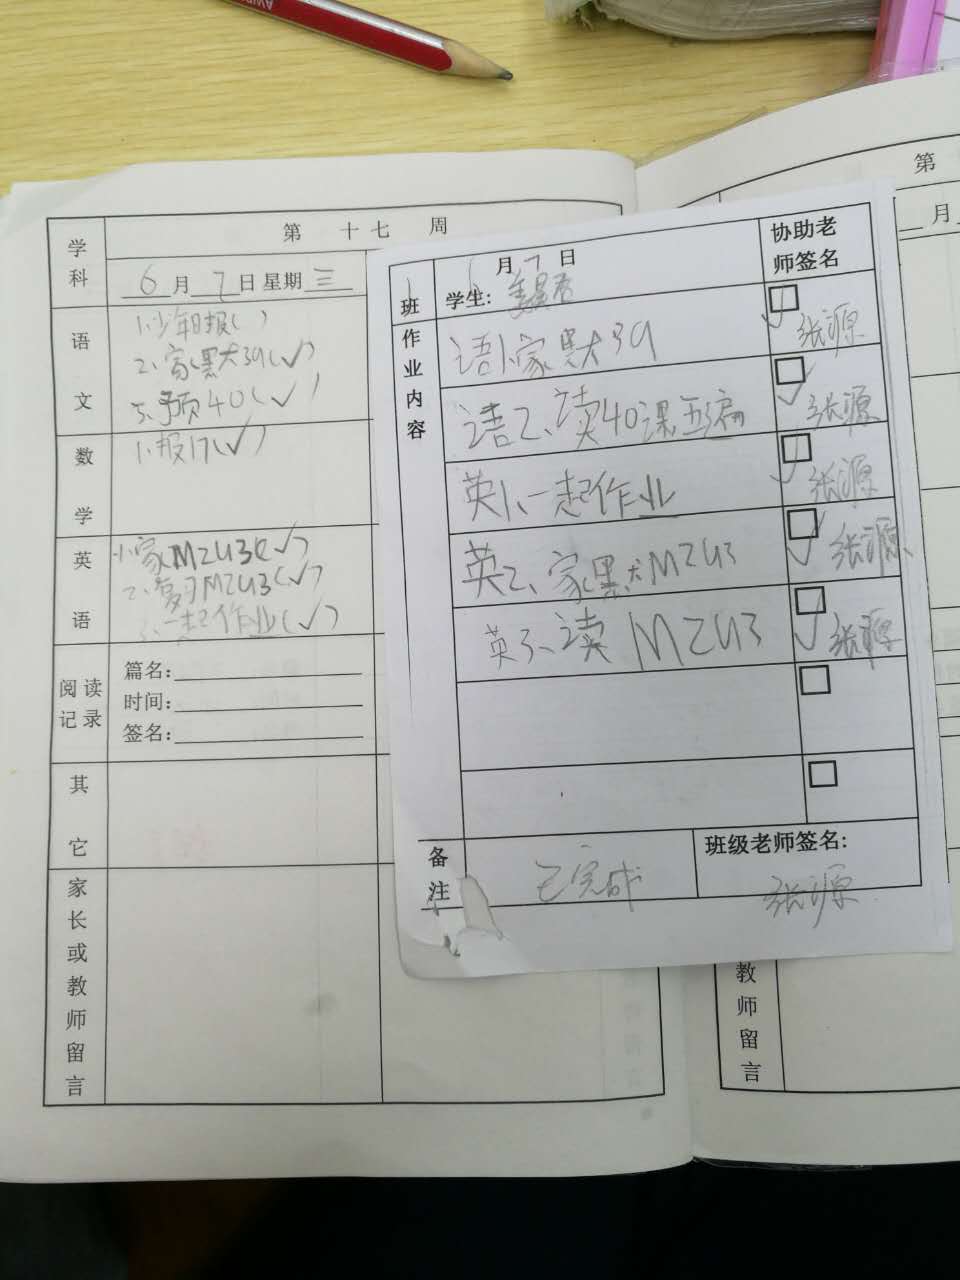 第 十七 周
学科
6月7日 星期三
语文
1、少年日报( )
2、家(黑大39(✓)
3、预40(✓)
数学
1、报17(✓)
英语
1、家M2U3(✓)
2、复习M2U3(✓)
3、一起作业(✓)
阅读记录
篇名:
时间:
签名:
其它
家长或教师留言
6月7日
协助老师签名
班
学生:
作业内容
语1、家黑大39
张源
语2、读40课五遍
张源
英1、一起作业
张源
英2、家黑大M2U3
张源
英3、读M2U3
张源
备注
已完成
班级老师签名:
张源
第
月
教师留言